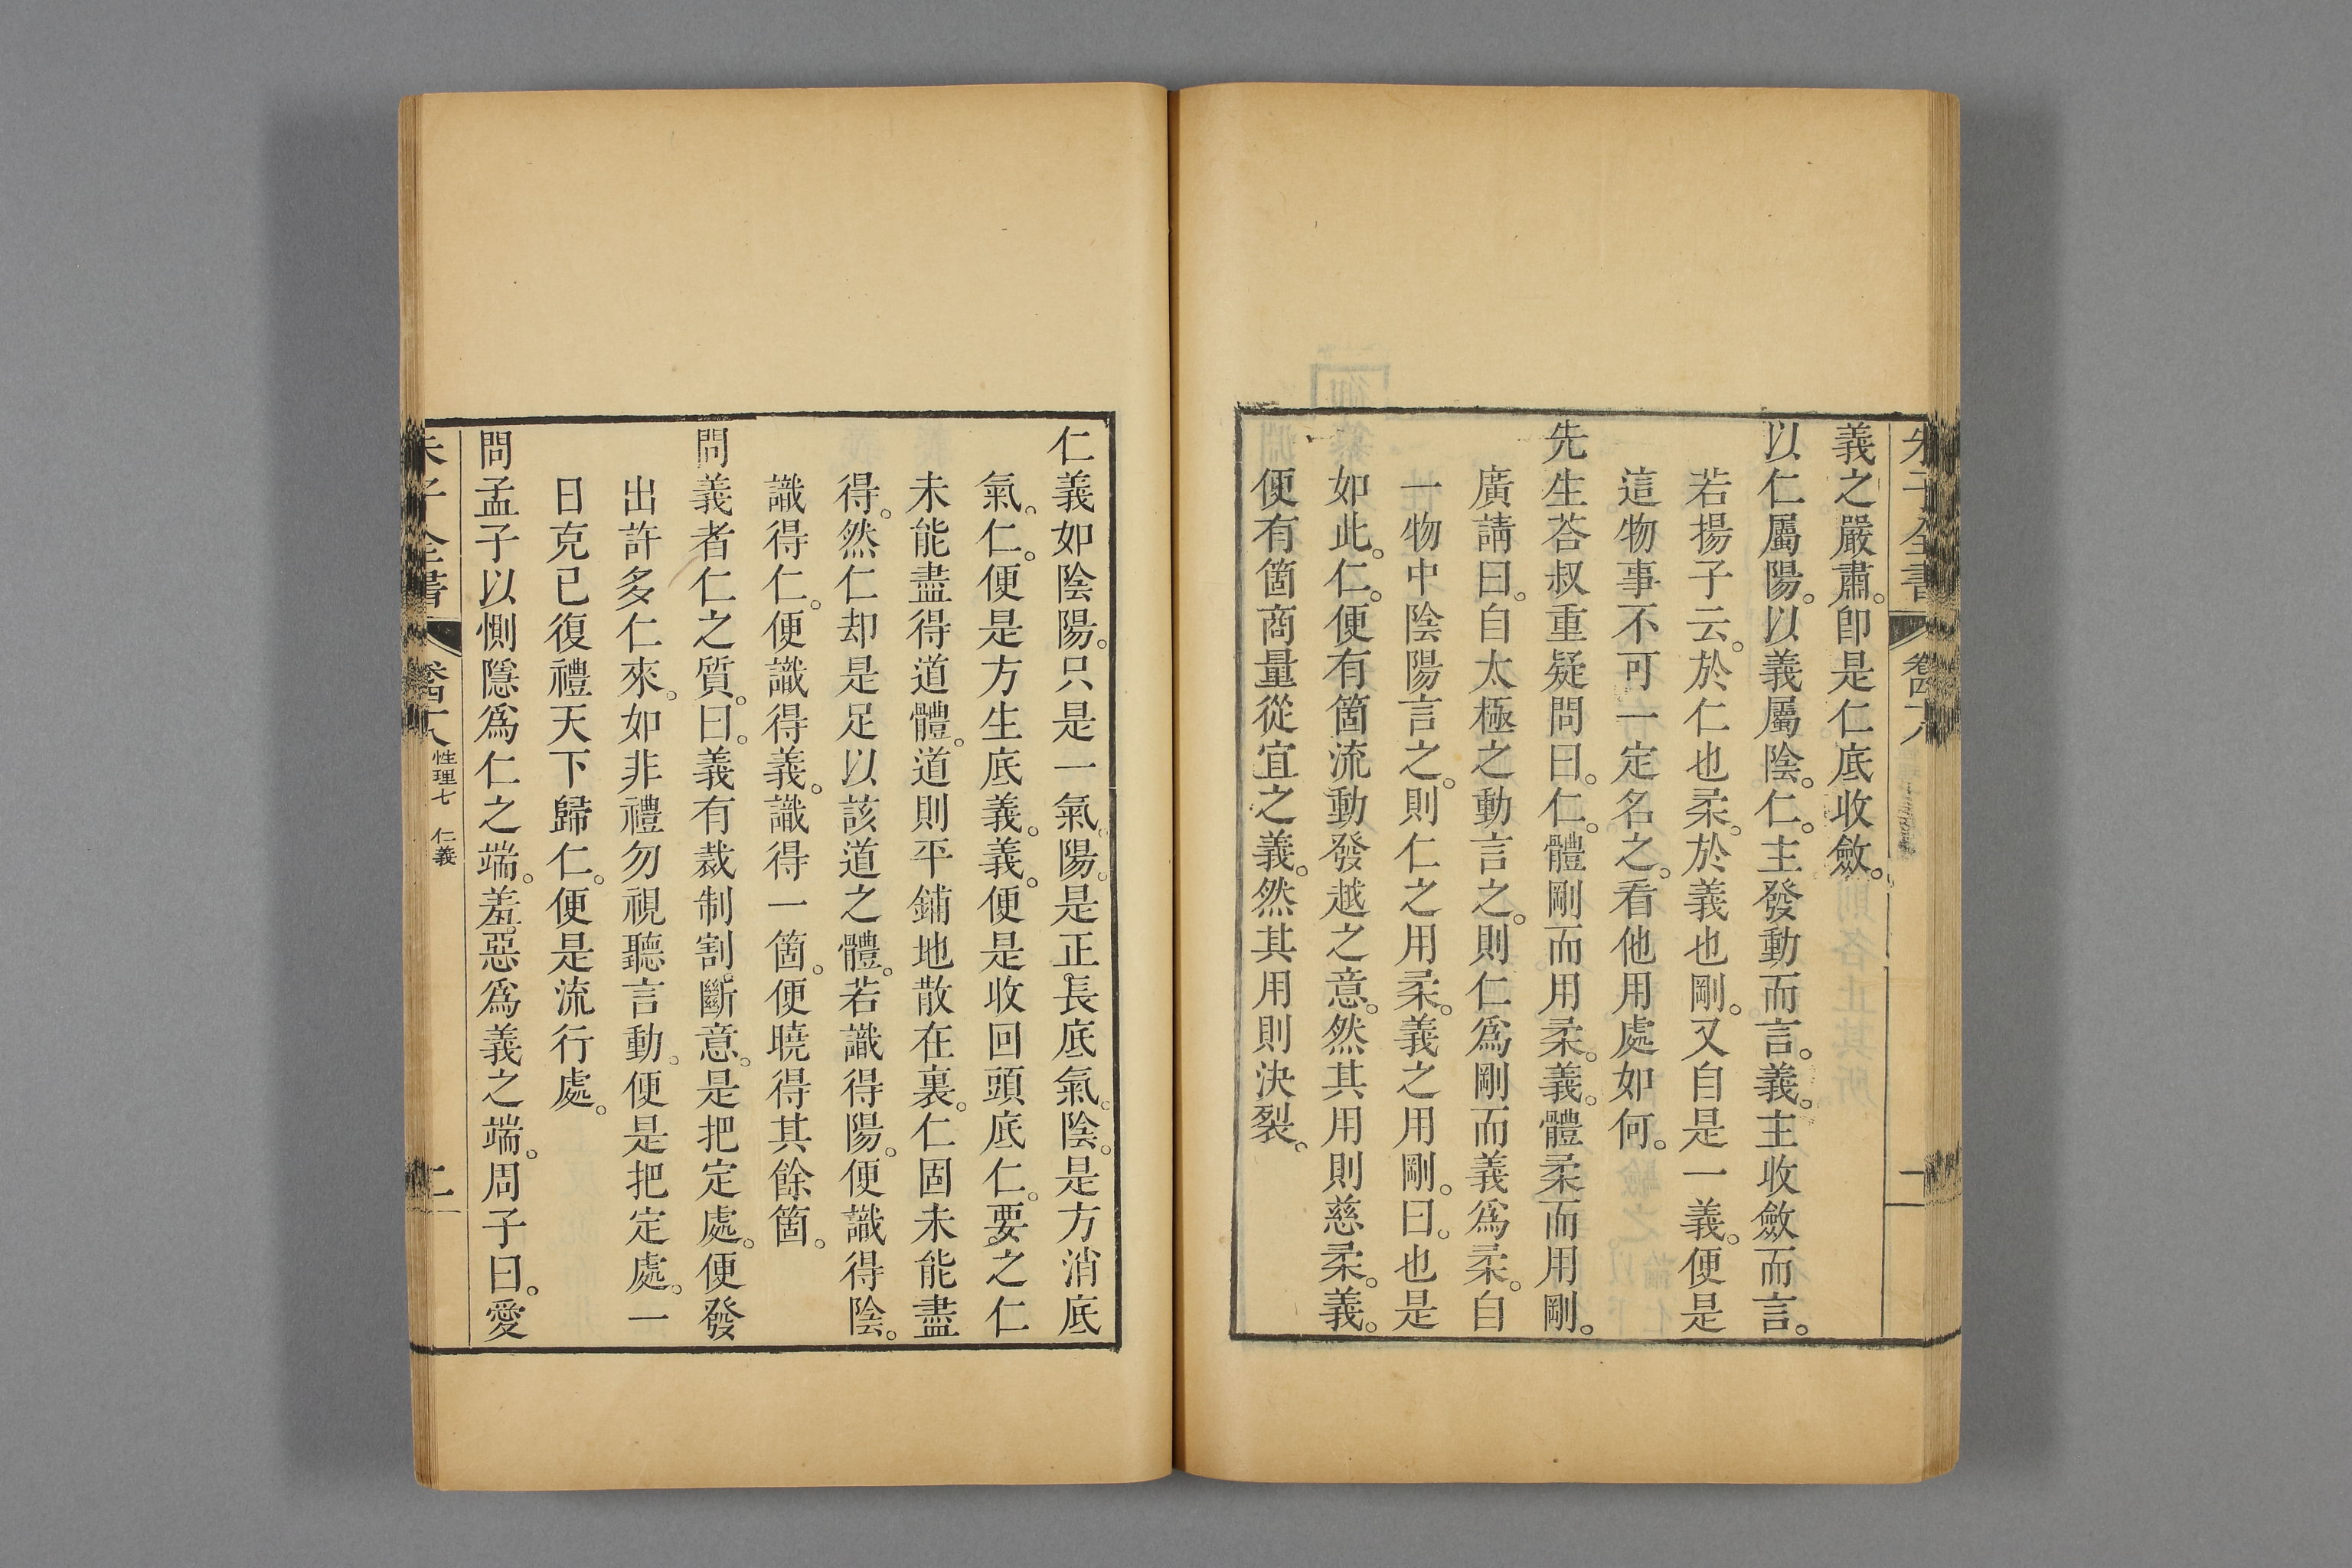 朱子全書
義之嚴肅。卽是仁底收斂。
以仁屬陽。以義屬陰。仁。主發動而言。義。主收斂而言。
若揚子云。於仁也柔。於義也剛。又自是一義。便是
這物事不可一定名之。看他用處如何。
先生荅叔重疑問曰。仁。體剛而用柔。義。體柔而用剛。
廣請曰。自太極之動言之。則仁爲剛而義爲柔。自
一物中陰陽言之。則仁之用柔。義之用剛。曰。也是
如此。仁。便有箇流動發越之意。然其用則慈柔。義。
便有箇商量從宜之義。然其用則決裂。
仁義如陰陽。只是一氣。陽。是正長底氣。陰。是方消底
氣。仁。便是方生底義。義。便是收回頭底仁。要之仁
未能盡得道體。道則平鋪地散在裏。仁固未能盡
得。然仁却是足以該道之體。若識得陽。便識得陰。
識得仁。便識得義。識得一箇。便曉得其餘箇。
問義者仁之質。曰。義有裁制割斷意。是把定處。便發
出許多仁來。如非禮勿視聽言動。便是把定處。一
日克已復禮天下歸仁。便是流行處。
問孟子以惻隱爲仁之端。羞惡爲義之端。周子曰。愛
性理七 仁義